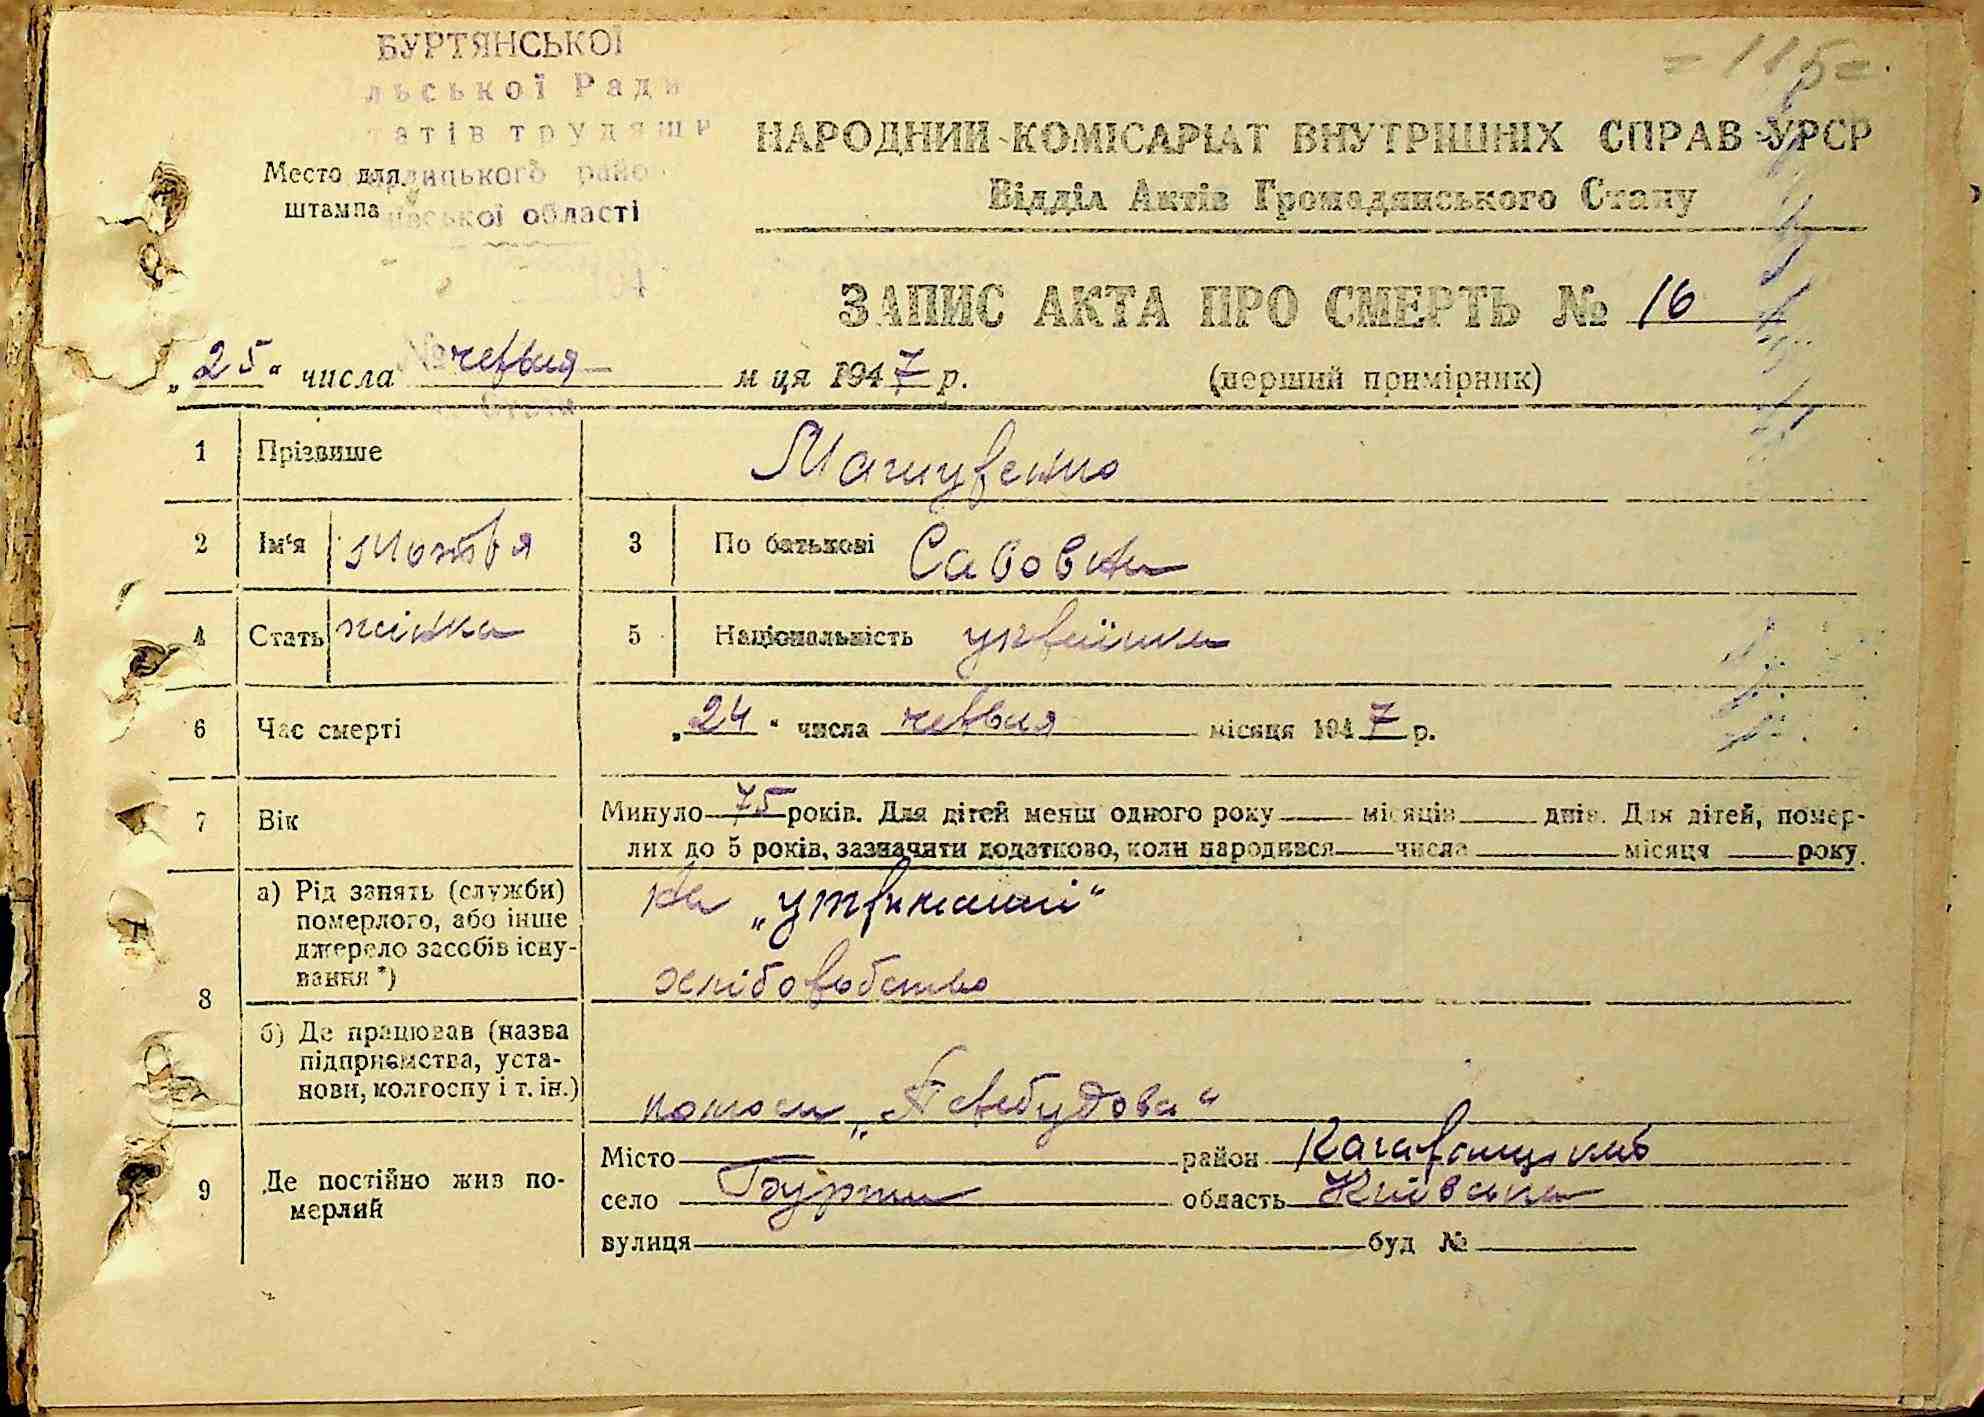 = 115 =
БУРТЯНСЬКОЇ
льської Ради
атів трудящи
ицького райо
ської області
Место для
штампа
НАРОДНИЙ КОМІСАРІАТ ВНУТРІШНІХ СПРАВ УРСР
Відділ Актів Громадянського Стану
ЗАПИС АКТА ПРО СМЕРТЬ № 16
„25“ числа червня м ця 1947 р. (перший примірник)
1 Прізвише
2 Ім'я Мотря 3 По батькові Савовна
4 Стать жінка 5 Національність українка
6 Час смерті „24“ числа червня місяця 1947 р.
7 Вік Минуло 75 років. Для дітей менш одного року місяців днів. Для дітей, помер-
лих до 5 років, зазначити додатково, коли народився числа місяця року
8 а) Рід занять (служби)
померлого, або інше
джерело засобів існу-
вання *)
на „утриманні“
хліборобство
б) Де працював (назва
підприємства, уста-
нови, колгоспу і т. ін.)
колгосп „Перебудова“
9 Де постійно жив по-
мерлий
Місто район Кагарлицький
село Бурти область Київська
вулиця буд №